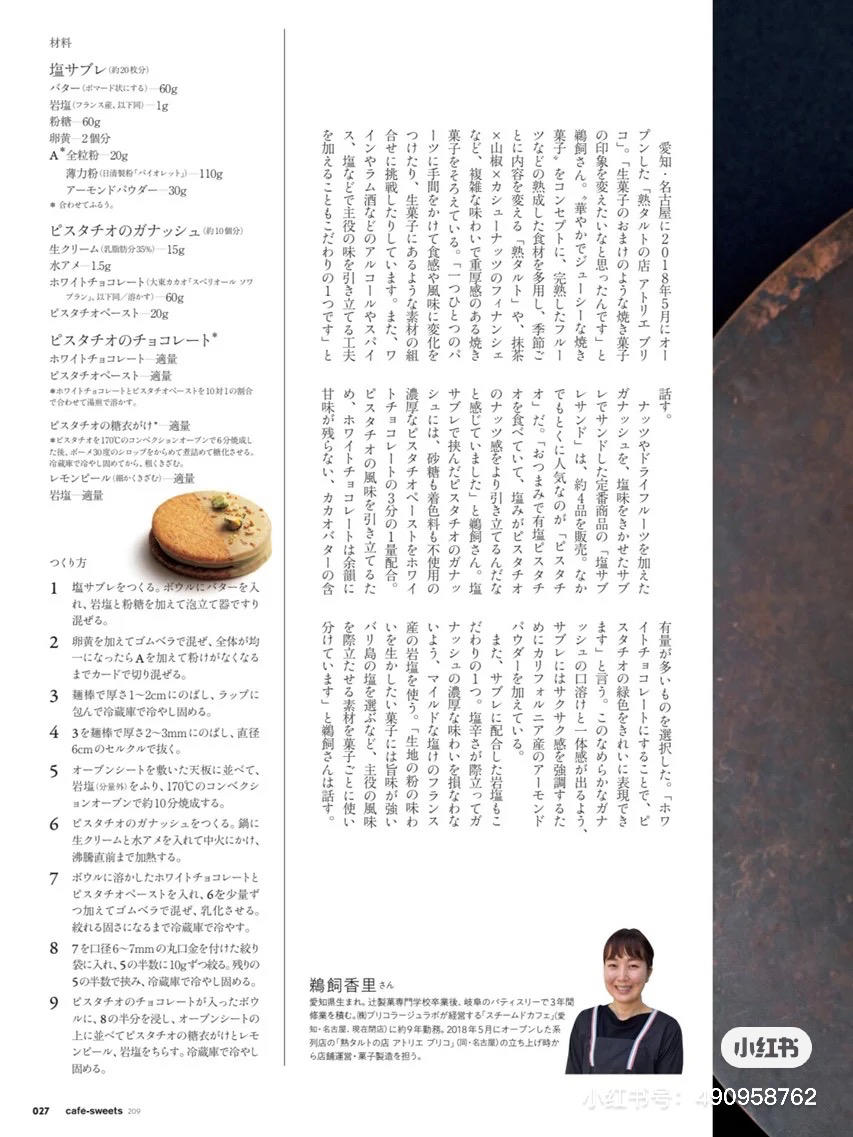 材料
塩サブレ(約20枚分)
バター(ポマード状にする)─60g
岩塩(フランス産、以下同)─1g
粉糖─60g
卵黄─2個分
A*全粒粉─20g
薄力粉(日清製粉「バイオレット」)─110g
アーモンドパウダー─30g
*合わせてふるう。
ピスタチオのガナッシュ(約10個分)
生クリーム(乳脂肪分35%)─15g
水アメ─1.5g
ホワイトチョコレート(大東カカオ「スペリオール ソワ
ブラン」、以下同／溶かす)─60g
ピスタチオペースト─20g
ピスタチオのチョコレート*
ホワイトチョコレート─適量
ピスタチオペースト─適量
*ホワイトチョコレートとピスタチオペーストを10対1の割合
で合わせて湯煎で溶かす。
ピスタチオの糖衣がけ*─適量
*ピスタチオを170℃のコンベクションオーブンで6分焼成し
た後、ボーメ30度のシロップをからめて煮詰めて糖化させる。
冷蔵庫で冷やし固めてから、粗くきざむ。
レモンピール(細かくきざむ)─適量
岩塩─適量
つくり方
1 塩サブレをつくる。ボウルにバターを入
れ、岩塩と粉糖を加えて泡立て器ですり
混ぜる。
2 卵黄を加えてゴムベラで混ぜ、全体が均
一になったらAを加えて粉けがなくなる
までカードで切り混ぜる。
3 麺棒で厚さ1〜2cmにのばし、ラップに
包んで冷蔵庫で冷やし固める。
4 3を麺棒で厚さ2〜3mmにのばし、直径
6cmのセルクルで抜く。
5 オーブンシートを敷いた天板に並べて、
岩塩(分量外)をふり、170℃のコンベクシ
ョンオーブンで約10分焼成する。
6 ピスタチオのガナッシュをつくる。鍋に
生クリームと水アメを入れて中火にかけ、
沸騰直前まで加熱する。
7 ボウルに溶かしたホワイトチョコレートと
ピスタチオペーストを入れ、6を少量ず
つ加えてゴムベラで混ぜ、乳化させる。
絞れる固さになるまで冷蔵庫で冷やす。
8 7を口径6〜7mmの丸口金を付けた絞り
袋に入れ、5の半数に10gずつ絞る。残りの
5の半数で挟み、冷蔵庫で冷やし固める。
9 ピスタチオのチョコレートが入ったボウ
ルに、8の半分を浸し、オーブンシートの
上に並べてピスタチオの糖衣がけとレモ
ンピール、岩塩をちらす。冷蔵庫で冷やし
固める。
愛知・名古屋に2018年5月にオー
プンした「熟タルトの店 アトリエ ブリ
コ」。「生菓子のおまけのような焼き菓子
の印象を変えたいなと思ったんです」と
鵜飼さん。〝華やかでジューシーな焼き
菓子〟をコンセプトに、完熟したフルー
ツなどの熟成した食材を多用し、季節ご
とに内容を変える「熟タルト」や、抹茶
×山椒×カシューナッツのフィナンシェ
など、複雑な味わいで重厚感のある焼き
菓子をそろえている。「一つひとつのパ
ーツに手間をかけて食感や風味に変化を
つけたり、生菓子にあるような素材の組
合せに挑戦したりしています。また、ワ
インやラム酒などのアルコールやスパイ
ス、塩などで主役の味を引き立てる工夫
を加えることもこだわりの1つです」と
話す。
ナッツやドライフルーツを加えた
ガナッシュを、塩味をきかせたサブ
レでサンドした定番商品の「塩サブ
レサンド」は、約4品を販売。なか
でもとくに人気なのが「ピスタチ
オ」だ。「おつまみで有塩ピスタチ
オを食べていて、塩みがピスタチオ
のナッツ感をより引き立てるんだな
と感じていました」と鵜飼さん。塩
サブレで挟んだピスタチオのガナッ
シュには、砂糖も着色料も不使用の
濃厚なピスタチオペーストをホワイ
トチョコレートの3分の1量配合。
ピスタチオの風味を引き立てるた
め、ホワイトチョコレートは余韻に
甘味が残らない、カカオバターの含
有量が多いものを選択した。「ホワ
イトチョコレートにすることで、ピ
スタチオの緑色をきれいに表現でき
ます」と言う。このなめらかなガナ
ッシュの口溶けと一体感が出るよう、
サブレにはサクサク感を強調するた
めにカリフォルニア産のアーモンド
パウダーを加えている。
また、サブレに配合した岩塩もこ
だわりの1つ。塩辛さが際立ってガ
ナッシュの濃厚な味わいを損なわな
いよう、マイルドな塩けのフランス
産の岩塩を使う。「生地の粉の味わ
いを生かしたい菓子には旨味が強い
バリ島の塩を選ぶなど、主役の風味
を際立たせる素材を菓子ごとに使い
分けています」と鵜飼さんは話す。
鵜飼香里さん
愛知県生まれ。辻製菓専門学校卒業後、岐阜のパティスリーで3年間
修業を積む。㈱ブリコラージュラボが経営する「スチームドカフェ」(愛
知・名古屋、現在閉店)に約9年勤務。2018年5月にオープンした系
列店の「熟タルトの店 アトリエ ブリコ」(同・名古屋)の立ち上げ時か
ら店舗運営・菓子製造を担う。
小红书
小红书号: 490958762
027 cafe-sweets 209